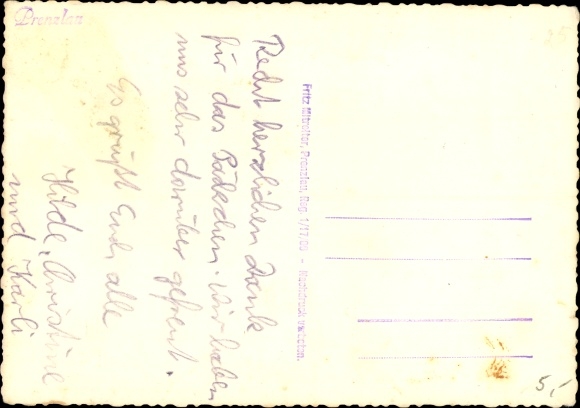 Prenzlau
Recht herzlichen Dank
für das Päckchen. Wir haben
uns sehr darüber gefreut.
Es grüßt Euch alle
Hilde, Christine
und Karli
Fritz Mitreiter, Prenzlau, Reg. 1/17,00 – Nachdruck verboten.
5,-